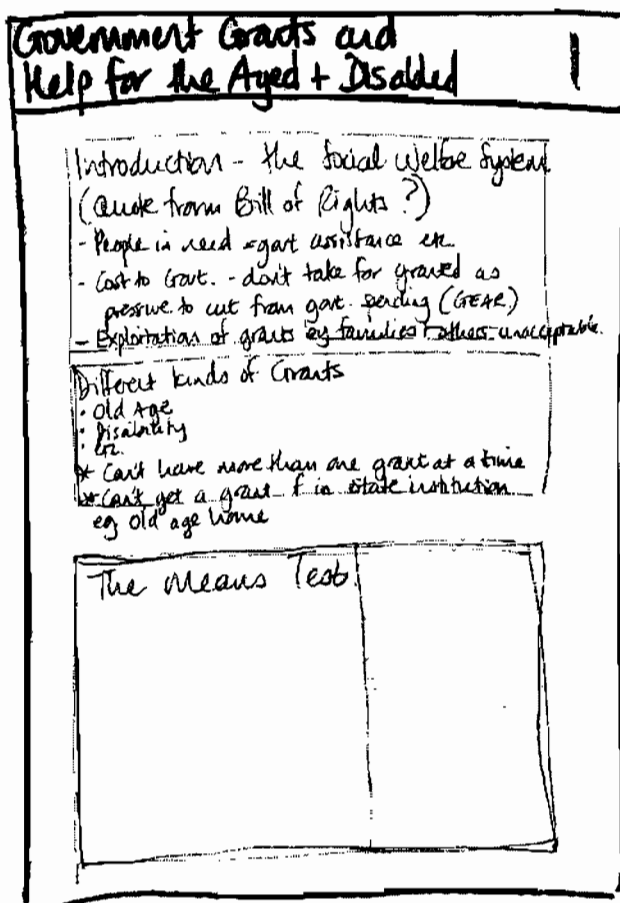 Government Grants and
Help for the Aged + Disabled
1
Introduction - the Social Welfare System
(Quote from Bill of Rights ?)
- People in need = govt assistance etc
- Cost to Govt. - don't take for granted as
pressure to cut from govt. spending (GEAR)
- Exploitation of grants by families + others - unacceptable.
Different kinds of Grants
· Old Age
· Disability
· etc.
* Can't have more than one grant at a time
* Can't get a grant if in state institution
eg old age home
The Means Test